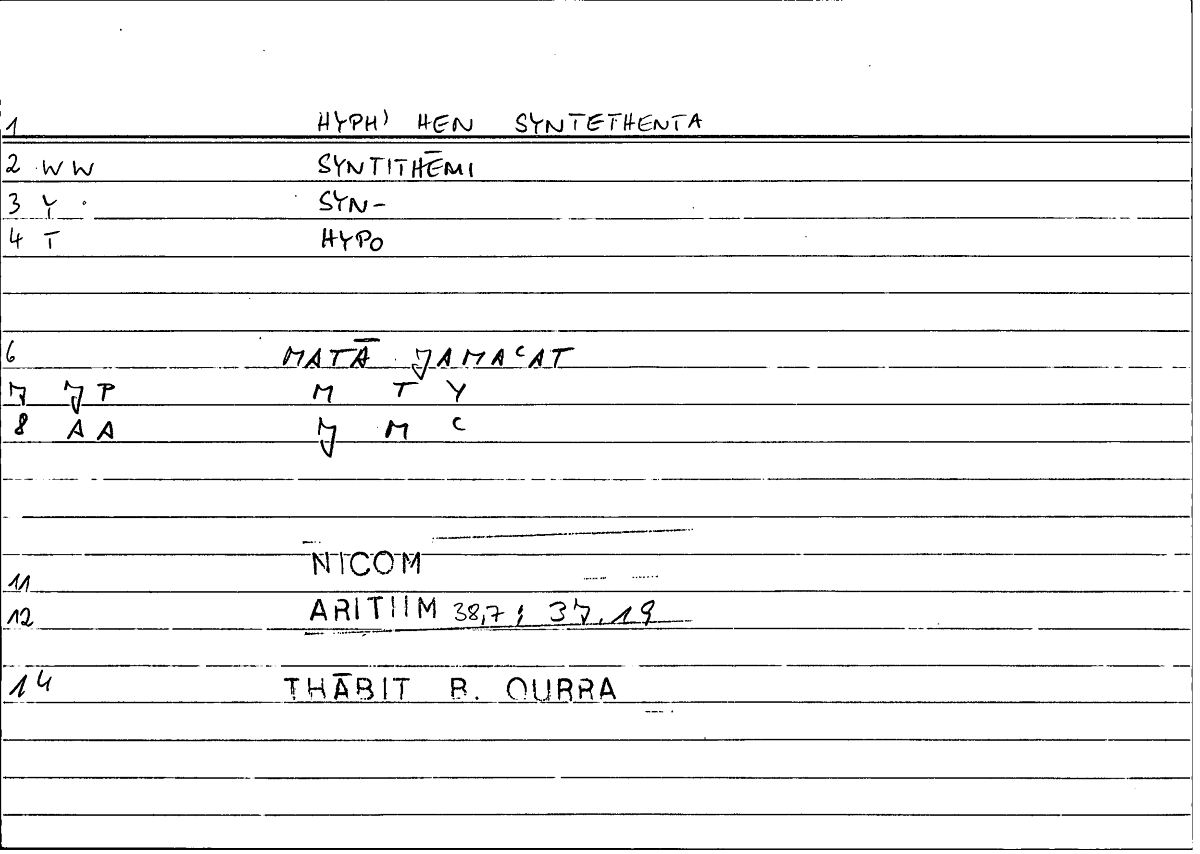 1 HYPH' HEN SYNTETHENTA
2 WW SYNTITHĒMI
3 Y SYN-
4 T HYPO
6 MATĀ JAMAᶜAT
7 JP M T Y
8 AA J M ᶜ
11 NICOM
12 ARITHM 38,7; 37.19
14 THĀBIT B. QURRA